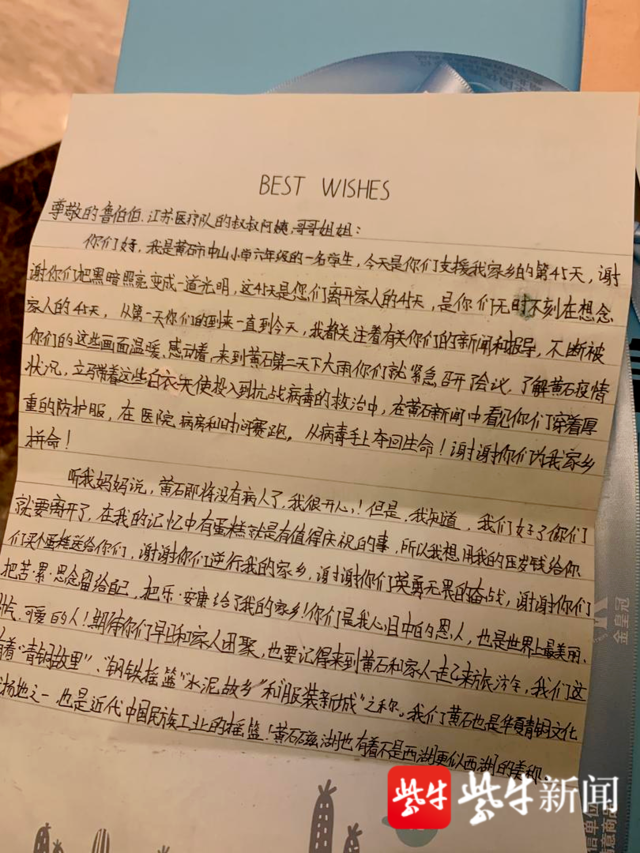 BEST WISHES
尊敬的鲁伯伯、江苏医疗队的叔叔阿姨、哥哥姐姐：
你们好，我是黄石市中山小学六年级的一名学生，今天是你们支援我家乡的第45天，谢
谢你们把黑暗照亮变成一道光明，这45天是您们离开家人的45天，是你们无时不刻在想念
家人的45天，从第一天你们的到来一直到今天，我都关注着有关你们的新闻和报导，不断被
你们的这些画面温暖、感动着，来到黄石第二天下大雨你们就紧急召开会议，了解黄石疫情
状况，立马带着这些白衣天使投入到抗战病毒的救治中，在黄石新闻中看见你们穿着厚
重的防护服，在医院病房和时间赛跑。从病毒手上夺回生命！谢谢你们为我家乡
拼命！
听我妈妈说，黄石即将没有病人了，我很开心！但是，我知道，我们好了你们
就要离开了，在我的记忆中有蛋糕就是有值得庆祝的事，所以我想用我的压岁钱给你
们买个蛋糕送给你们，谢谢你们逆行我的家乡，谢谢你们英勇无畏的奋战，谢谢你们
把苦累·思念留给自己，把乐·安康给了我的家乡！你们是我心目中的恩人，也是世界上最美丽、
可爱的人！期待你们早日和家人团聚，也要记得来到黄石和家人一起来旅游，我们这
着“青铜故里”、“钢铁摇篮”“水泥故乡”和“服装新城”之称。我们黄石也是华夏青铜文化
地之一也是近代中国民族工业的摇篮！黄石磁湖也有着不是西湖更似西湖的美称
金皇冠
信单位
紫牛
紫牛新闻